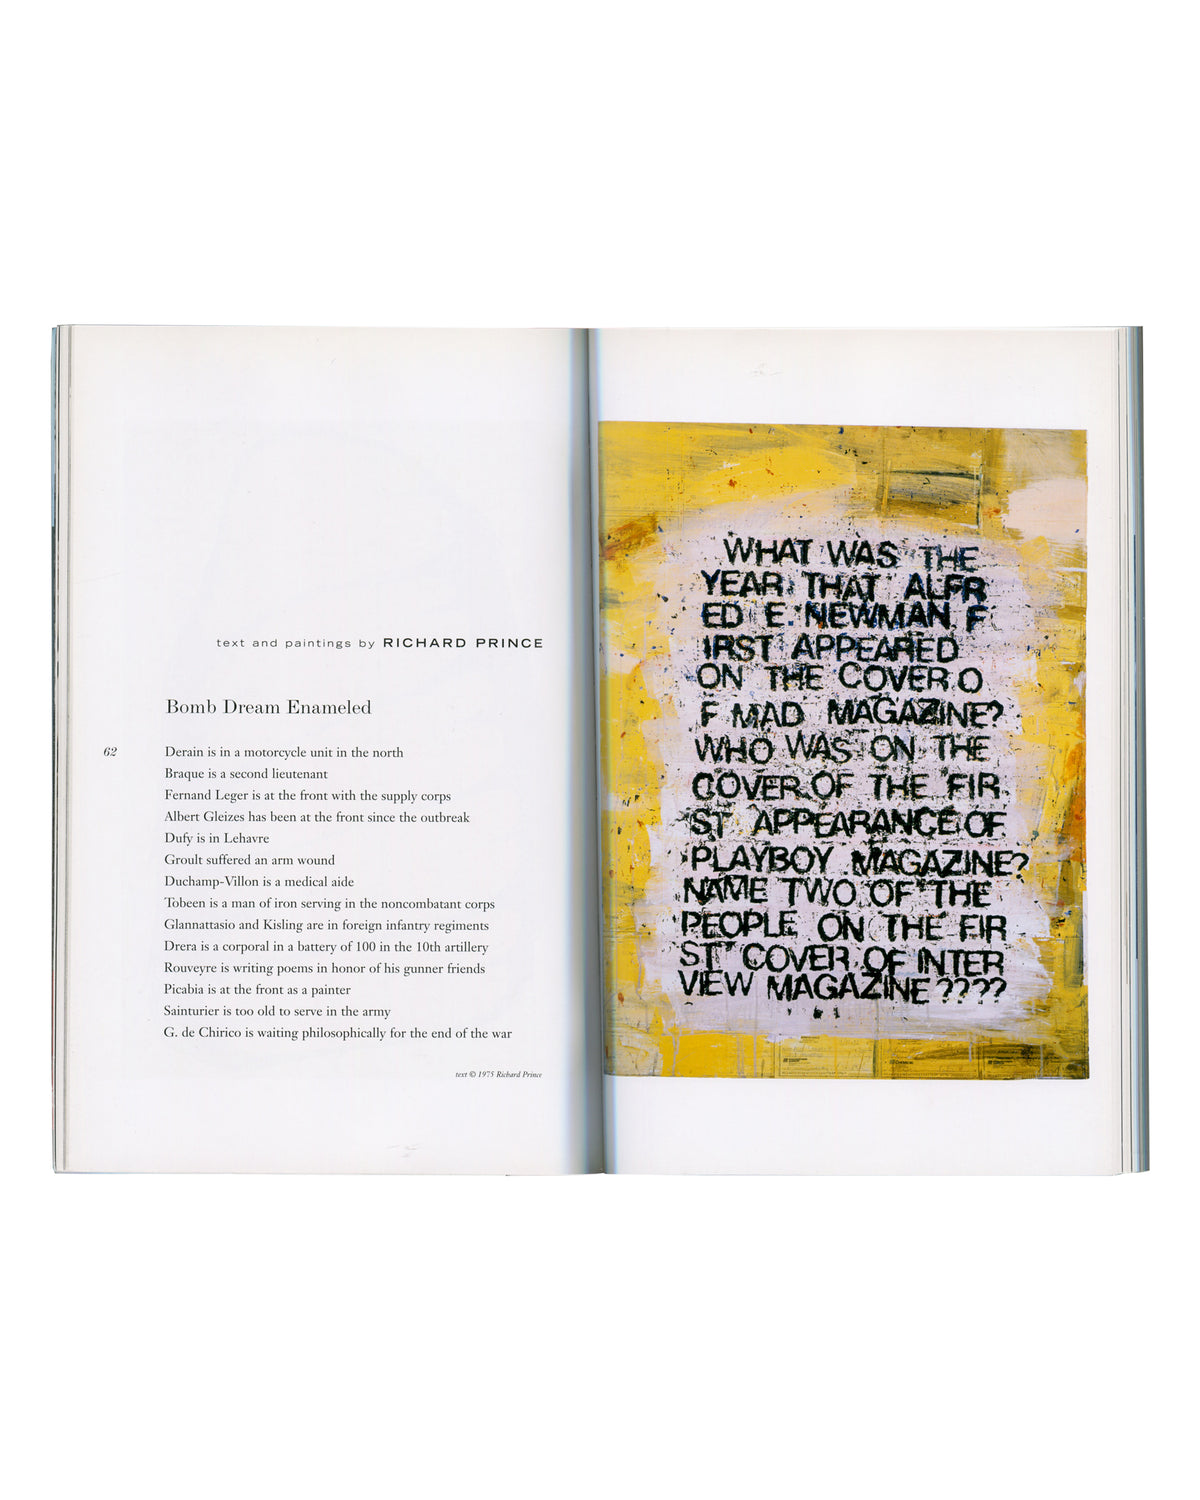 text and paintings by RICHARD PRINCE
Bomb Dream Enameled
62
Derain is in a motorcycle unit in the north
Braque is a second lieutenant
Fernand Leger is at the front with the supply corps
Albert Gleizes has been at the front since the outbreak
Dufy is in Lehavre
Groult suffered an arm wound
Duchamp-Villon is a medical aide
Tobeen is a man of iron serving in the noncombatant corps
Glannattasio and Kisling are in foreign infantry regiments
Drera is a corporal in a battery of 100 in the 10th artillery
Rouveyre is writing poems in honor of his gunner friends
Picabia is at the front as a painter
Sainturier is too old to serve in the army
G. de Chirico is waiting philosophically for the end of the war
text © 1975 Richard Prince
WHAT WAS THE
YEAR THAT ALFR
ED E. NEWMAN F
IRST APPEARED
ON THE COVER O
F MAD MAGAZINE?
WHO WAS ON THE
COVER OF THE FIR
ST APPEARANCE OF
PLAYBOY MAGAZINE?
NAME TWO OF THE
PEOPLE ON THE FIR
ST COVER OF INTER
VIEW MAGAZINE????